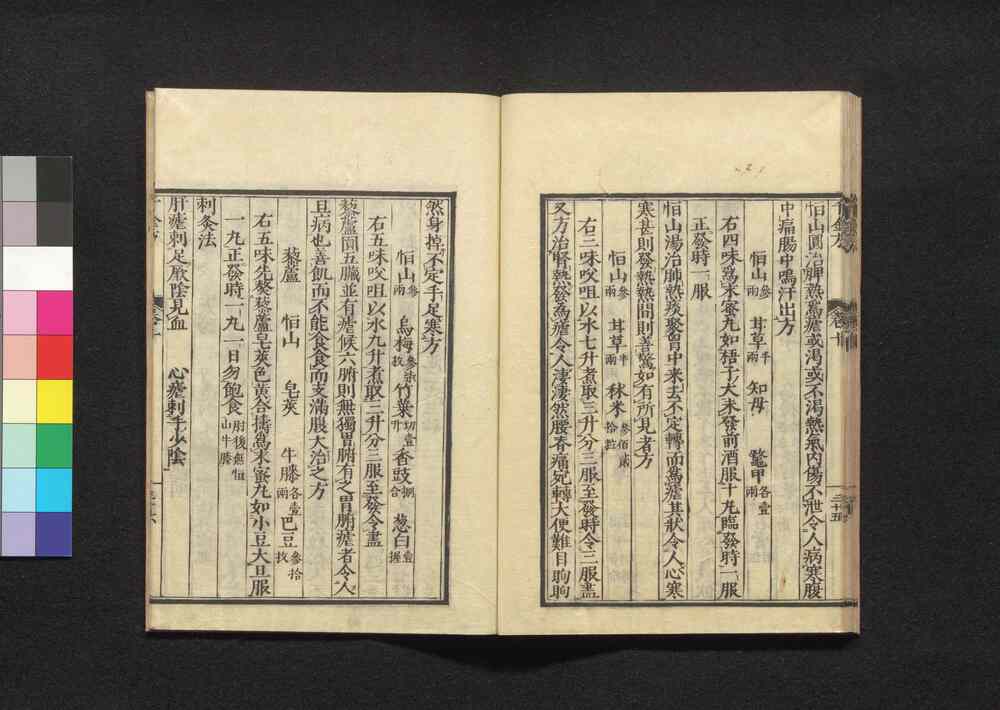 恒山圓治脾熱爲瘧或渴或不渴熱氣内傷不泄令人病寒腹
中痛腸中鳴汗出方
恒山叄兩 甘草半兩 知母 鼈甲各壹兩
右四味爲末蜜丸如梧子大未發前酒服十丸臨發時一服
正發時一服
恒山湯治肺熱痰聚胷中来去不定轉而爲瘧其狀令人心寒
寒甚則發熱熱間則善驚如有所見者方
恒山叄兩 甘草半兩 秫米叄佰貳拾粒
右三味㕮咀以水七升煮取三升分三服至發時令三服盡
又方治腎熱發爲瘧令人凄凄然腰脊痛宛轉大便難目眴眴
然身掉不定手足寒方
恒山叄兩 烏梅叄柒枚 竹葉切壹升 香豉捌合 葱白壹握
右五味㕮咀以水九升煮取三升分三服至發令盡
藜蘆圓五臓並有瘧候六腑則無獨胃腑有之胃腑瘧者令人
旦病也善飢而不能食食而支滿腹大治之方
藜蘆 恒山 皂莢 牛膝各壹兩 巴豆叄拾枚
右五味先熬藜蘆皂莢色黄合擣爲末蜜丸如小豆大旦服
一丸正發時一丸一日勿飽食肘後無恒山牛膝
刺灸法
肝瘧刺足厥陰見血 心瘧刺手少陰